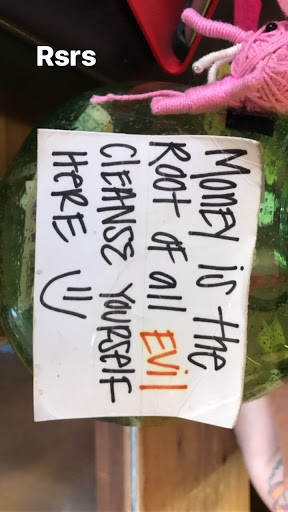 Rsrs
Money is the
ROOT OF all EVil
CLEANSE YOURSELF
HERE :)